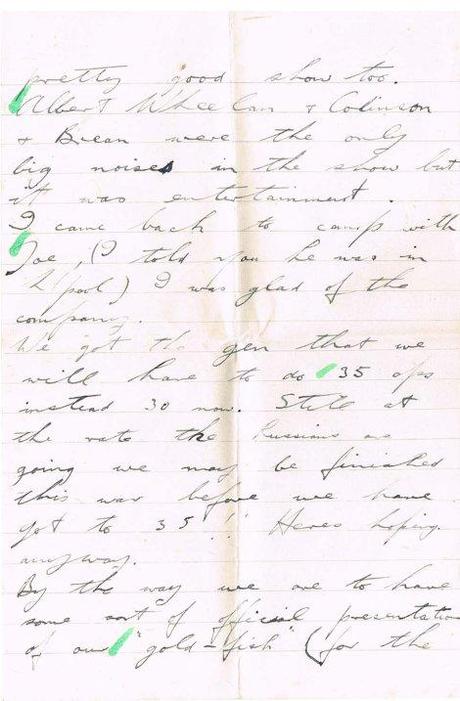 pretty good show too.
Albert Whelan & Colinson
& Breen were the only
big noises in the show but
it was entertainment.
I came back to camp with
Joe, (I told you he was in
L'pool) I was glad of the
company.
We got the gen that we
will have to do 35 ops
instead 30 now. Still at
the rate the Russians are
going we may be finished
this war before we have
got to 35!! Heres hoping
anyway.
By the way we are to have
some sort of official presentation
of our "gold-fish" (for the